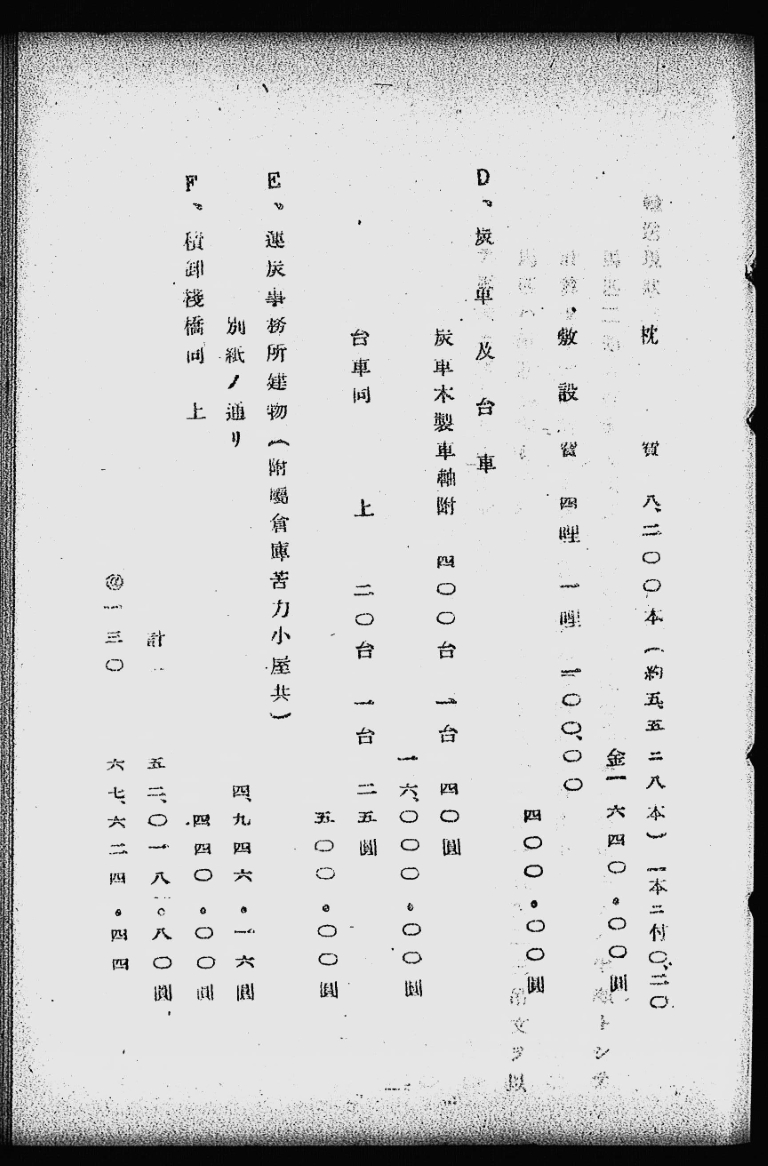 枕　木　費　八、二〇〇本（約五、五二八本）一本ニ付〇、二〇
金一六四〇。〇〇圓
敷設費　四哩　一哩　一〇〇、〇〇
四〇〇。〇〇圓
D、炭車及台車
炭車木製車軸附　四〇〇台　一台　四〇圓
一六、〇〇〇。〇〇圓
台車同　上　二〇台　一台　二五圓
五〇〇。〇〇圓
E、運炭事務所建物（附屬倉庫苦力小屋共）
別紙ノ通リ　四、九四六。一六圓
F、積卸棧橋同　上　四四〇。〇〇圓
計　五二、〇一八。八〇圓
@一三〇　六七、六二四。四四